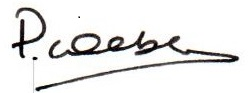 P. Weber